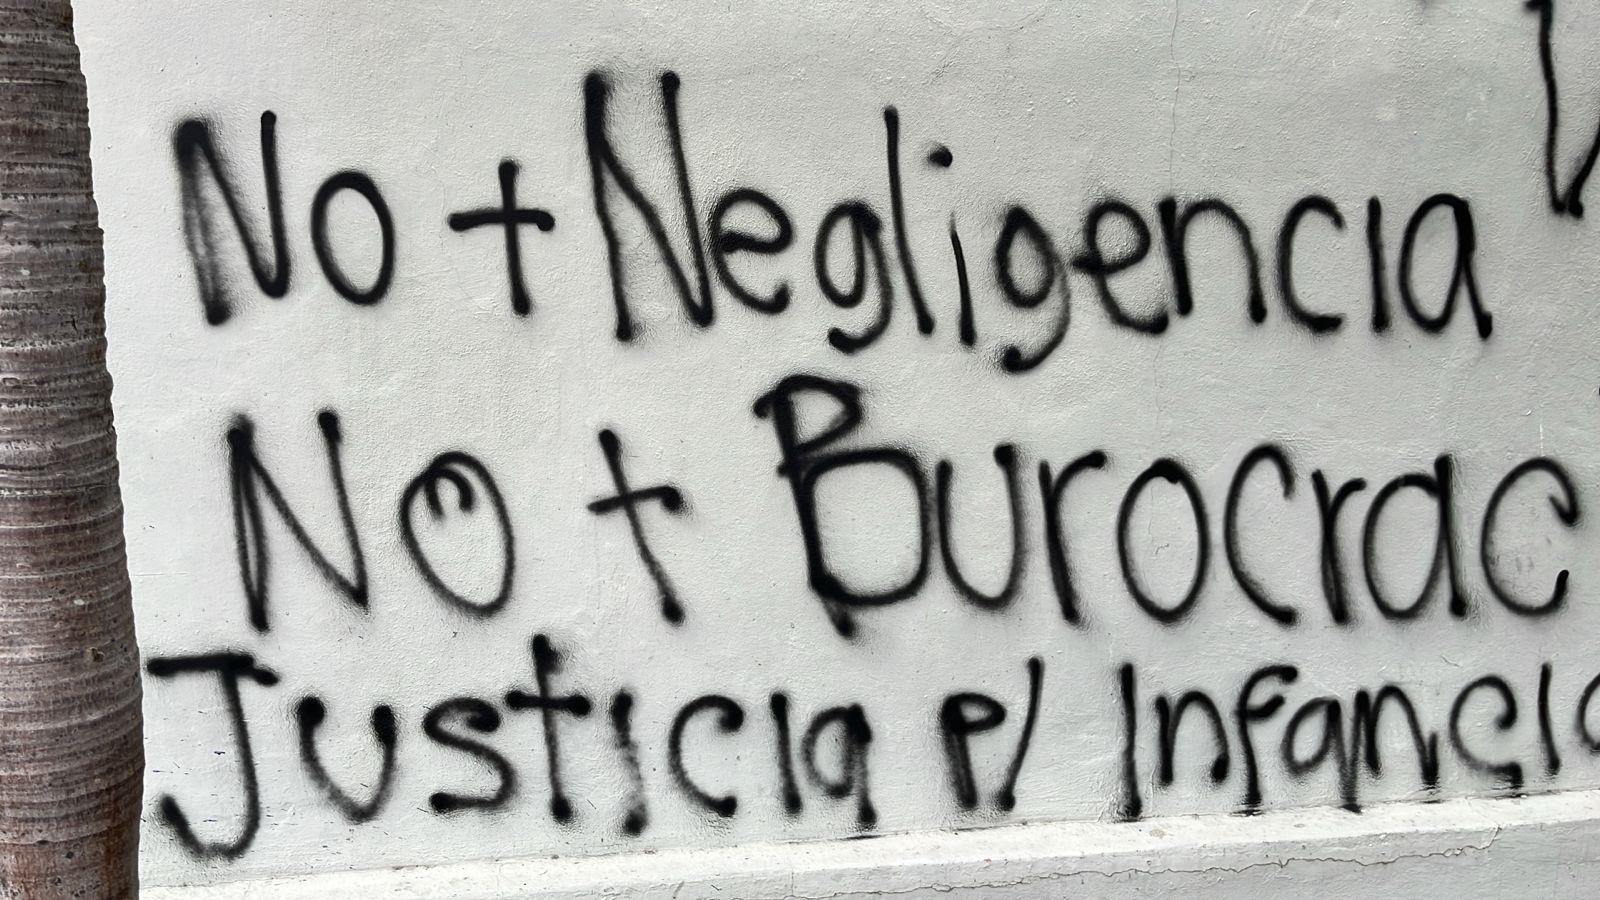 No + Negligencia
No + Burocrac
Justicia p/ Infancia